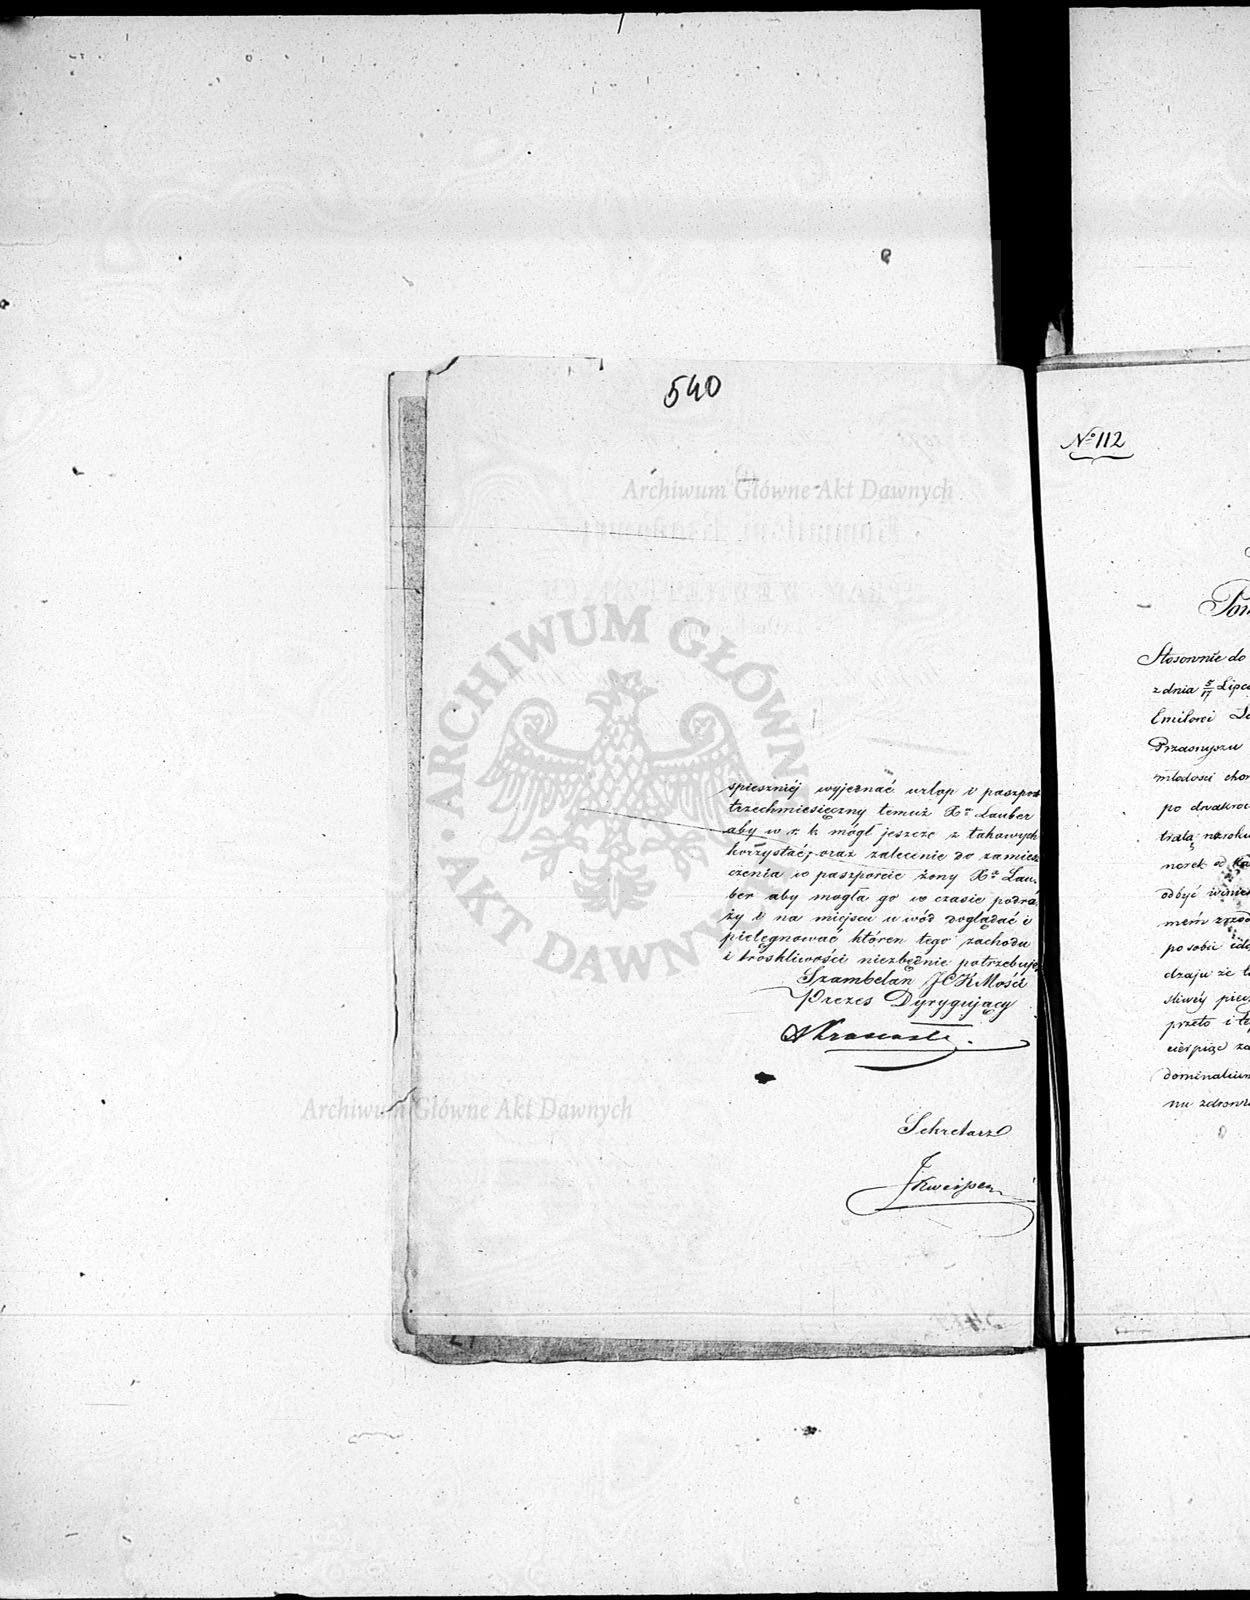 540
Archiwum Główne Akt Dawnych
ARCHIWUM GŁÓWNE AKT DAWNYCH
spieszniéj wyjednać urlop i paszport
trzechmiesięczny temuż Xᵘ Lauber
aby w r. b. mógł jeszcze z takowych
korzystać, oraz zalecenie do zamiesz
czenia w paszporcie żony Xᵃ Lau-
ber aby mogła go w czasie podró
ży i na miejscu u wód doglądać i
pielęgnować któren tego zachodu
i troskliwości niezbędnie potrzebuje.
Szambelan JCKMości
Prezes Dyrygujący
Archiwum Główne Akt Dawnych
Sekretarz
№ 112
Stosownie do
z dnia 5/17 Lipca
Emilowi
Przasnyszu
młodości
po dwakroć
odbyć winien
po sobie
dzaju że
przeto i
cierpiąc